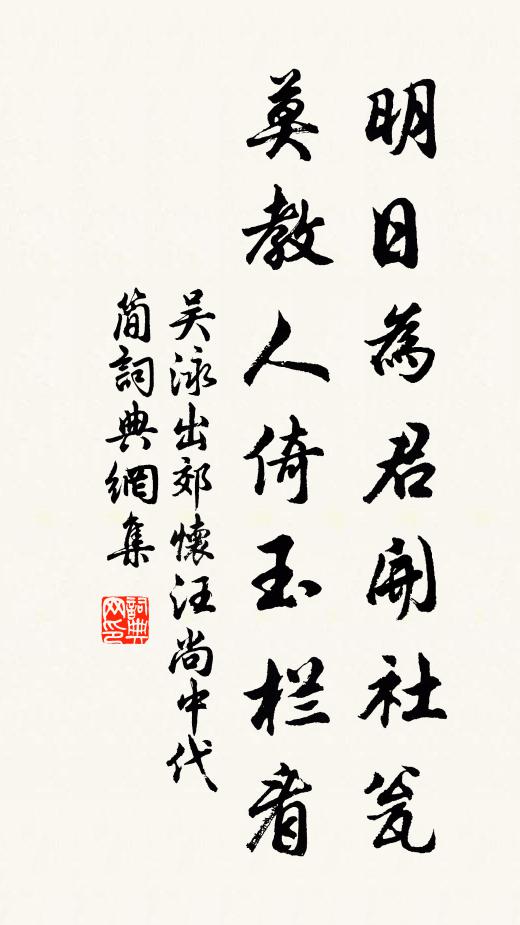 明日為君開社瓮
莫教人倚玉栏看
吴泳出郊懷汪尚中代
簡詞典網集
詞典网印